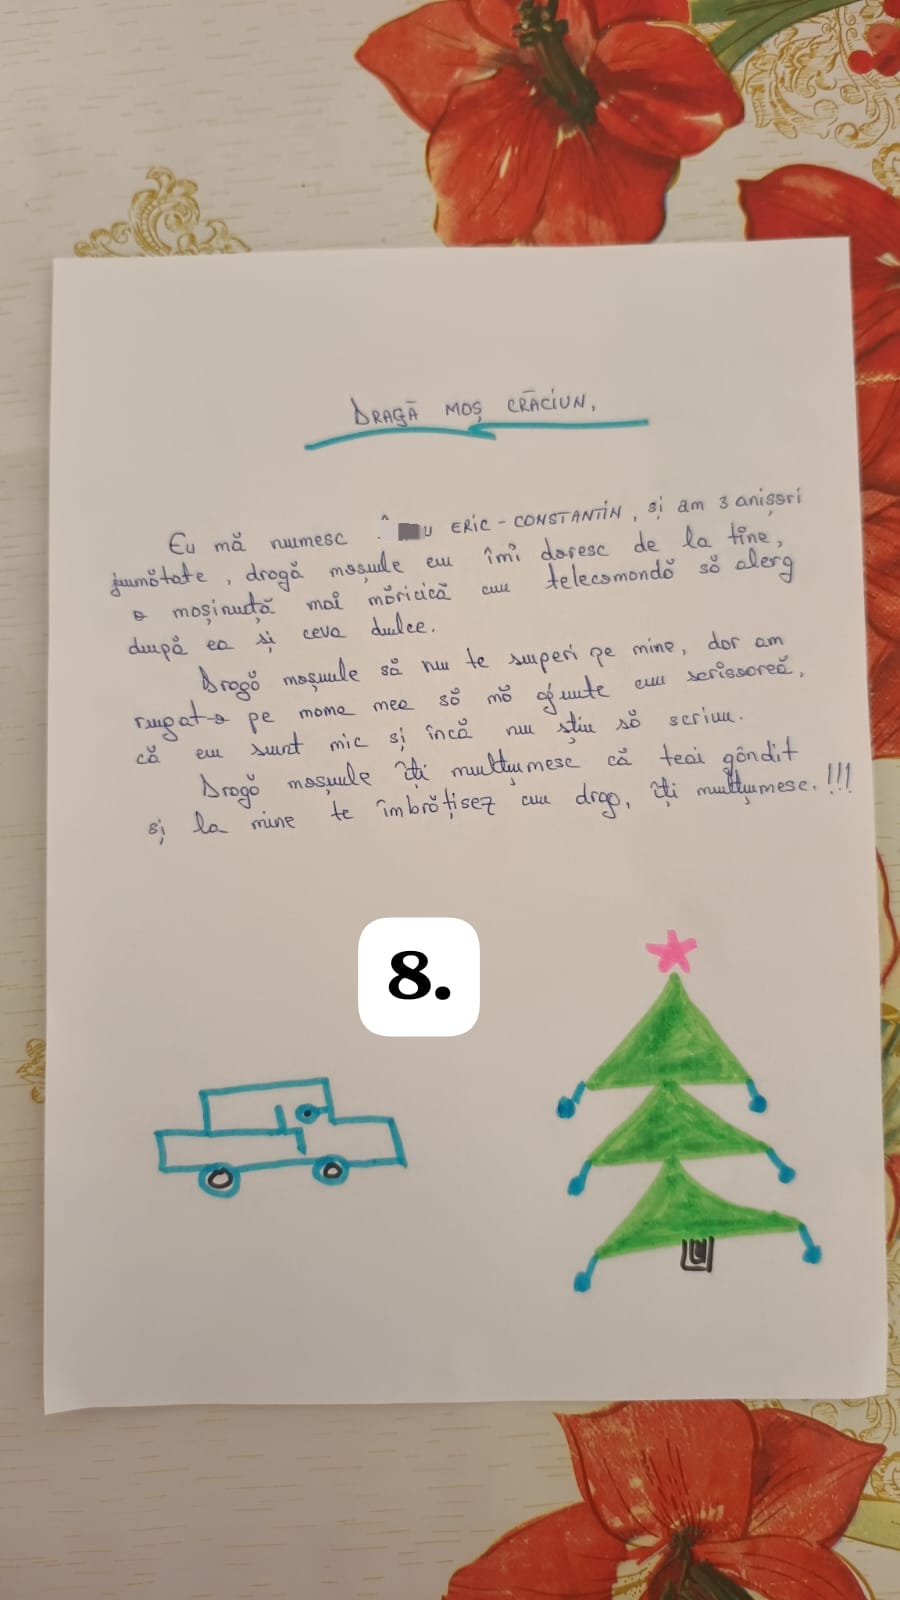 DRAGĂ MOȘ CRĂCIUN,
Eu mă numesc ERIC-CONSTANTIN, și am 3 anișori
jumătate, dragă moșule eu îmi doresc de la tine,
o mașinuță mai măricică cu telecomandă să alerg
după ea și ceva dulce.
Dragă moșule să nu te superi pe mine, dar am
rugat-o pe mama mea să mă ajute cu scrisoarea,
că eu sunt mic și încă nu știu să scriu.
Dragă moșule îți mulțumesc că teai gândit
și la mine te îmbrățisez cu drag, îți mulțumesc.!!!
8.